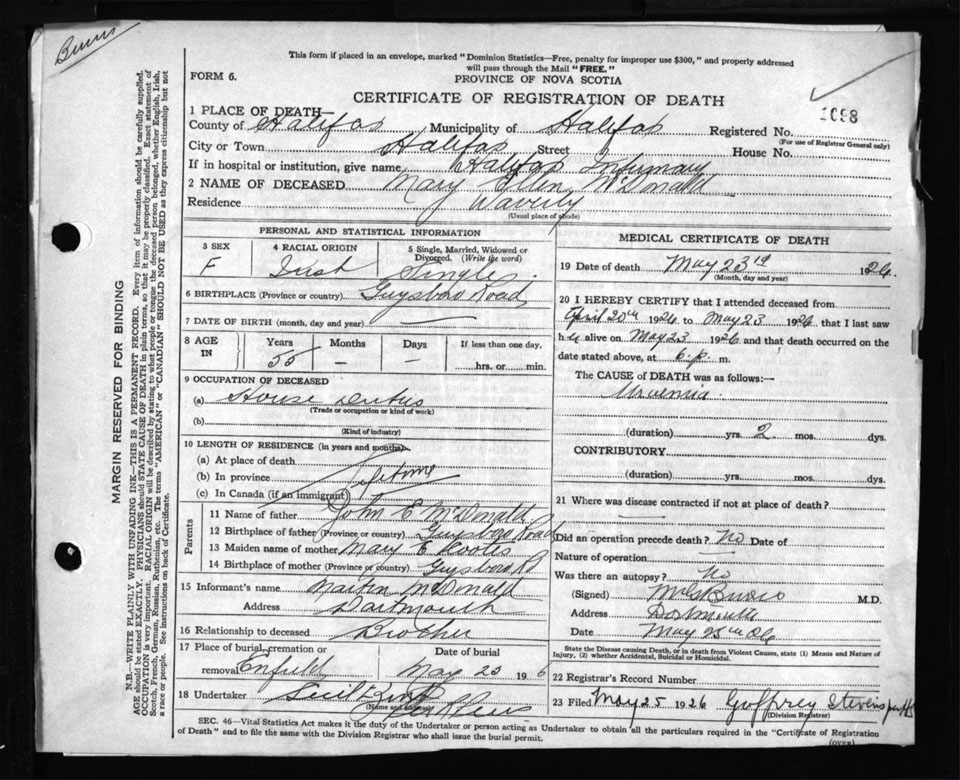 Burns
This form if placed in an envelope, marked "Dominion Statistics—Free, penalty for improper use $300," and properly addressed
will pass through the Mail "FREE."
FORM 6.
PROVINCE OF NOVA SCOTIA
CERTIFICATE OF REGISTRATION OF DEATH
1098
1 PLACE OF DEATH—
County of Halifax Municipality of Halifax Registered No.
(For use of Registrar General only)
City or Town Halifax Street House No.
If in hospital or institution, give name Halifax Infirmary
2 NAME OF DECEASED Mary Ellen McDonald
Residence Waverly
(Usual place of abode)
PERSONAL AND STATISTICAL INFORMATION
3 SEX F
4 RACIAL ORIGIN Irish
5 Single, Married, Widowed or Divorced. (Write the word) Single
6 BIRTHPLACE (Province or country) Guysboro Road
7 DATE OF BIRTH (month, day and year) —
8 AGE IN Years 55 Months — Days — If less than one day, hrs. or min.
9 OCCUPATION OF DECEASED
(a) House Duties
(Trade or occupation or kind of work)
(b)
(Kind of industry)
10 LENGTH OF RESIDENCE (in years and months)
(a) At place of death
(b) In province Lifetime
(c) In Canada (if an immigrant)
Parents
11 Name of father John E McDonald
12 Birthplace of father (Province or country) Guysboro Road
13 Maiden name of mother Mary E
14 Birthplace of mother (Province or country) Guysboro Rd
15 Informant's name Martin McDonald
Address Dartmouth
16 Relationship to deceased Brother
17 Place of burial, cremation or removal Enfield
Date of burial May 25 19 6
18 Undertaker
(Name and address)
MEDICAL CERTIFICATE OF DEATH
19 Date of death May 23rd 1926.
(Month, day and year)
20 I HEREBY CERTIFY that I attended deceased from
April 20th 1926 to May 23 1926 that I last saw
h er alive on May 23 1926 and that death occurred on the
date stated above, at 6. p. m.
The CAUSE of DEATH was as follows:—
Uraemia.
(duration) yrs. 2 mos. dys.
CONTRIBUTORY
(duration) yrs. mos. dys.
21 Where was disease contracted if not at place of death?
—
Did an operation precede death? No Date of
Nature of operation —
Was there an autopsy? No
(Signed) Burns M.D.
Address Dartmouth
Date May 25th 26
State the Disease causing Death, or in death from Violent Causes, state (1) Means and Nature of
Injury, (2) whether Accidental, Suicidal or Homicidal.
22 Registrar's Record Number
23 Filed May 25 1926 Geoffrey Stevens
(Division Registrar)
SEC. 46—Vital Statistics Act makes it the duty of the Undertaker or person acting as Undertaker to obtain all the particulars required in the "Certificate of Registration
of Death" and to file the same with the Division Registrar who shall issue the burial permit.
(OVER)
MARGIN RESERVED FOR BINDING
N.B.—WRITE PLAINLY WITH UNFADING INK—THIS IS A PERMANENT RECORD. Every item of information should be carefully supplied.
AGE should be stated EXACTLY. PHYSICIANS should STATE CAUSE OF DEATH in plain terms, so that it may be properly classified. Exact statement of
OCCUPATION is very important. RACIAL ORIGIN will be described by stating to what people or tongue the deceased person belonged, whether English, Irish,
Scotch, French, German, Russian, Ruthenian, etc. The terms "AMERICAN" or "CANADIAN" SHOULD NOT BE USED as they express citizenship but not
a race or people. See instructions on back of Certificate.